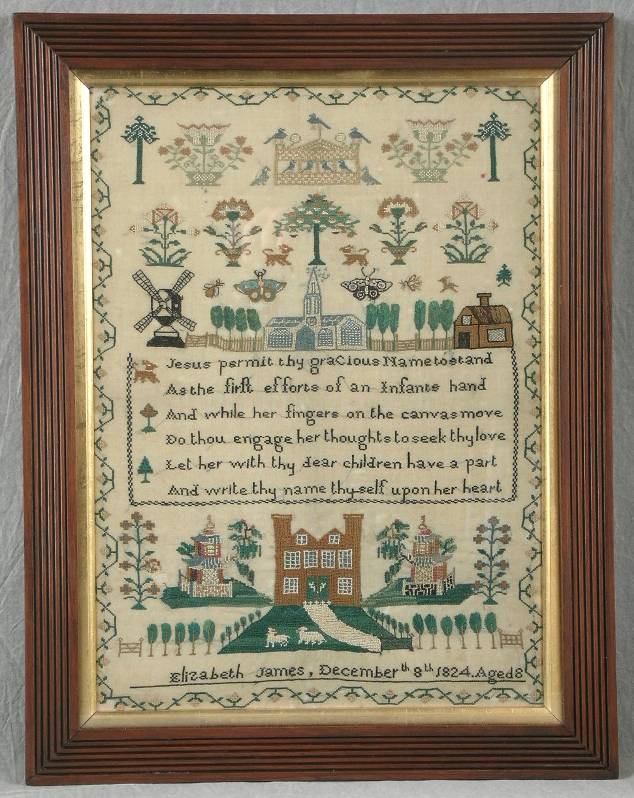 Jesus permit thy graCious Name to stand
As the first efforts of an Infants hand
And while her fingers on the canvas move
Do thou engage her thoughts to seek thy love
Let her with thy dear children have a part
And write thy name thy self upon her heart
Elizabeth James, December th 8th 1824. Aged 8